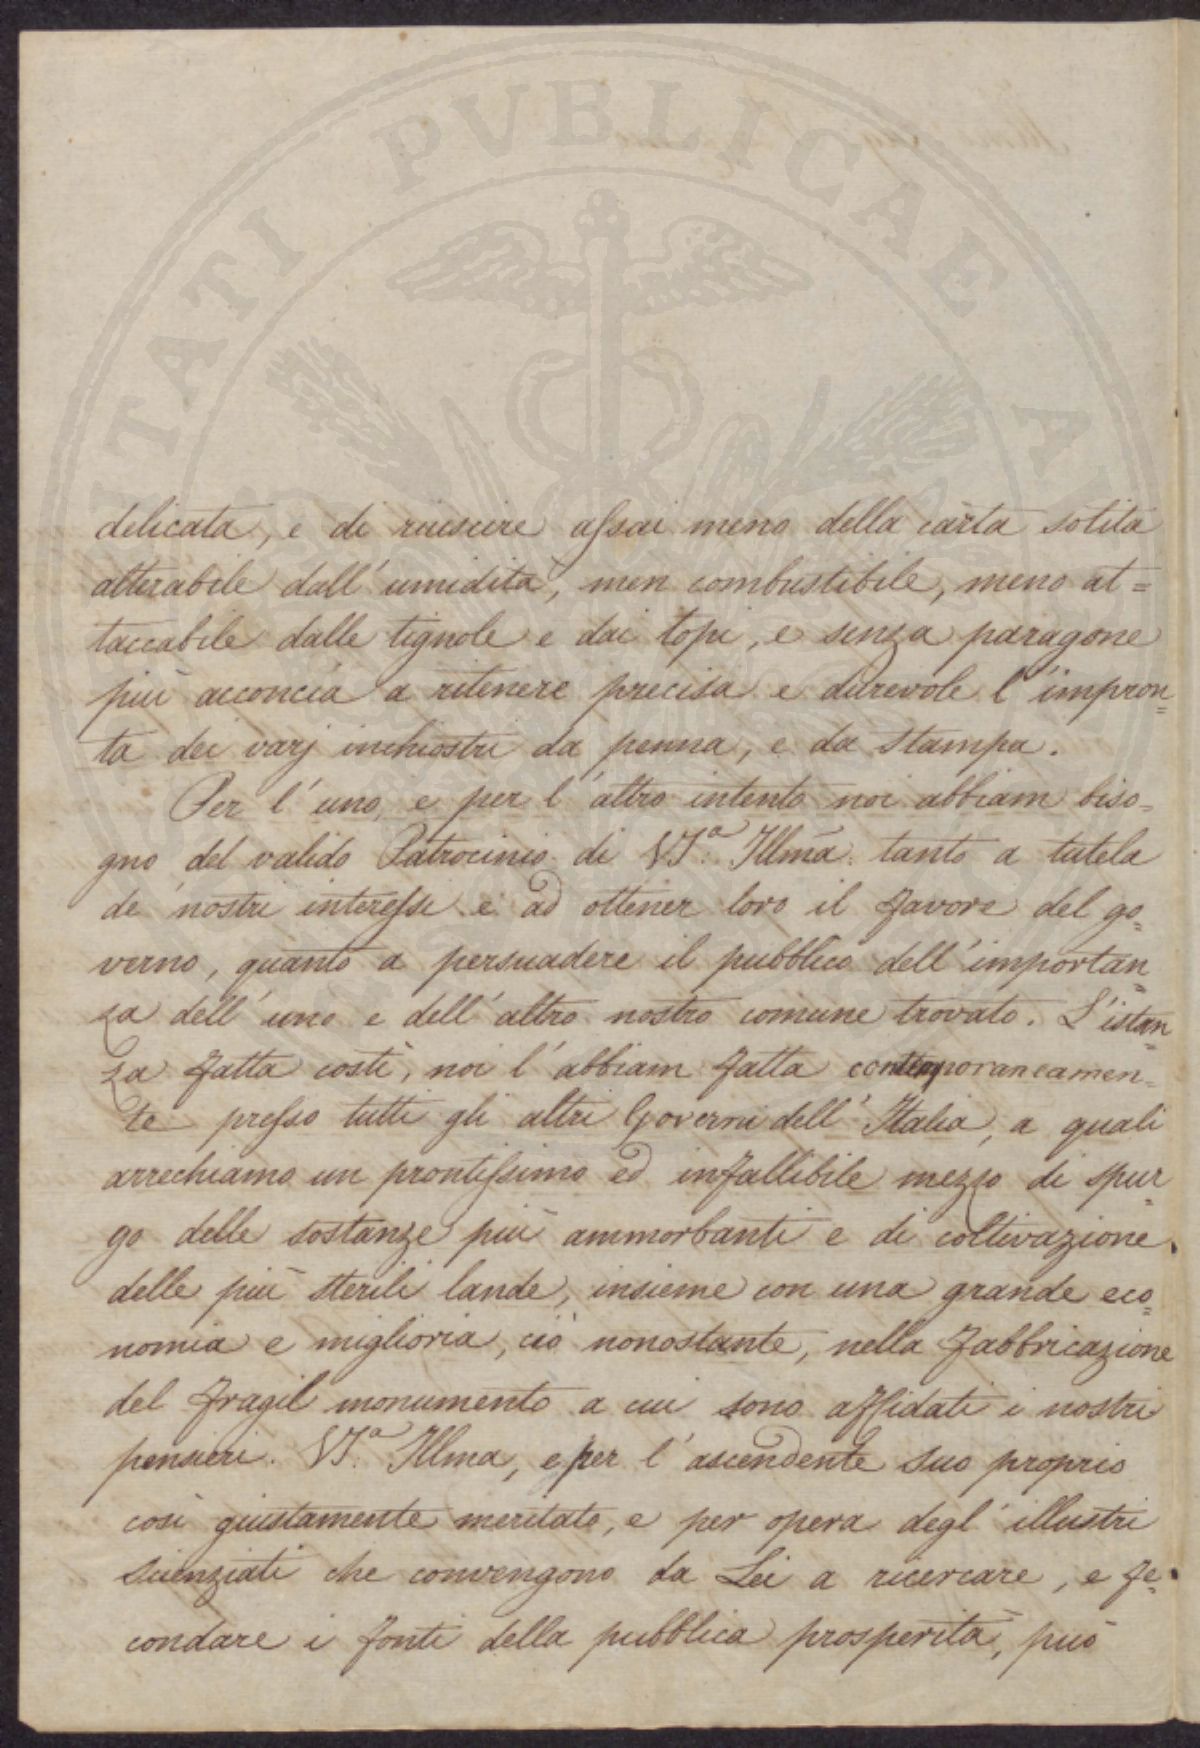 VTILITATI PVBLICAE
delicata, e di riuscire assai meno della carta solita
alterabile dall' umidità, men combustibile, meno at=
taccabile dalle tignole e dai topi, e senza paragone
più acconcia a ritenere precisa e durevole l' impron=
ta dei varj inchiostri da penna, e da stampa.
Per l' uno, e per l' altro intento noi abbiam biso=
gno del valido Patrocinio di VSª. Illma tanto a tutela
de' nostri interessi e ad ottener loro il favore del go=
verno, quanto a persuadere il pubblico dell' importan=
za dell' uno e dell' altro nostro comune trovato. L' istan=
za fatta costì, noi l' abbiam fatta contemporaneamen=
te presso tutti gli altri Governi dell' Italia, a quali
arrechiamo un prontissimo ed infallibile mezzo di spur=
go delle sostanze più ammorbanti e di coltivazione
delle più sterili lande, insieme con una grande eco=
nomia e miglioria, ciò nonostante, nella fabbricazione
del fragil monumento a cui sono affidati i nostri
pensieri. VSª. Illma, e per l' ascendente suo proprio
così giustamente meritato, e per opera degl' illustri
scienziati che convengono da Lei a ricercare, e fe=
condare i fonti della pubblica prosperità, può